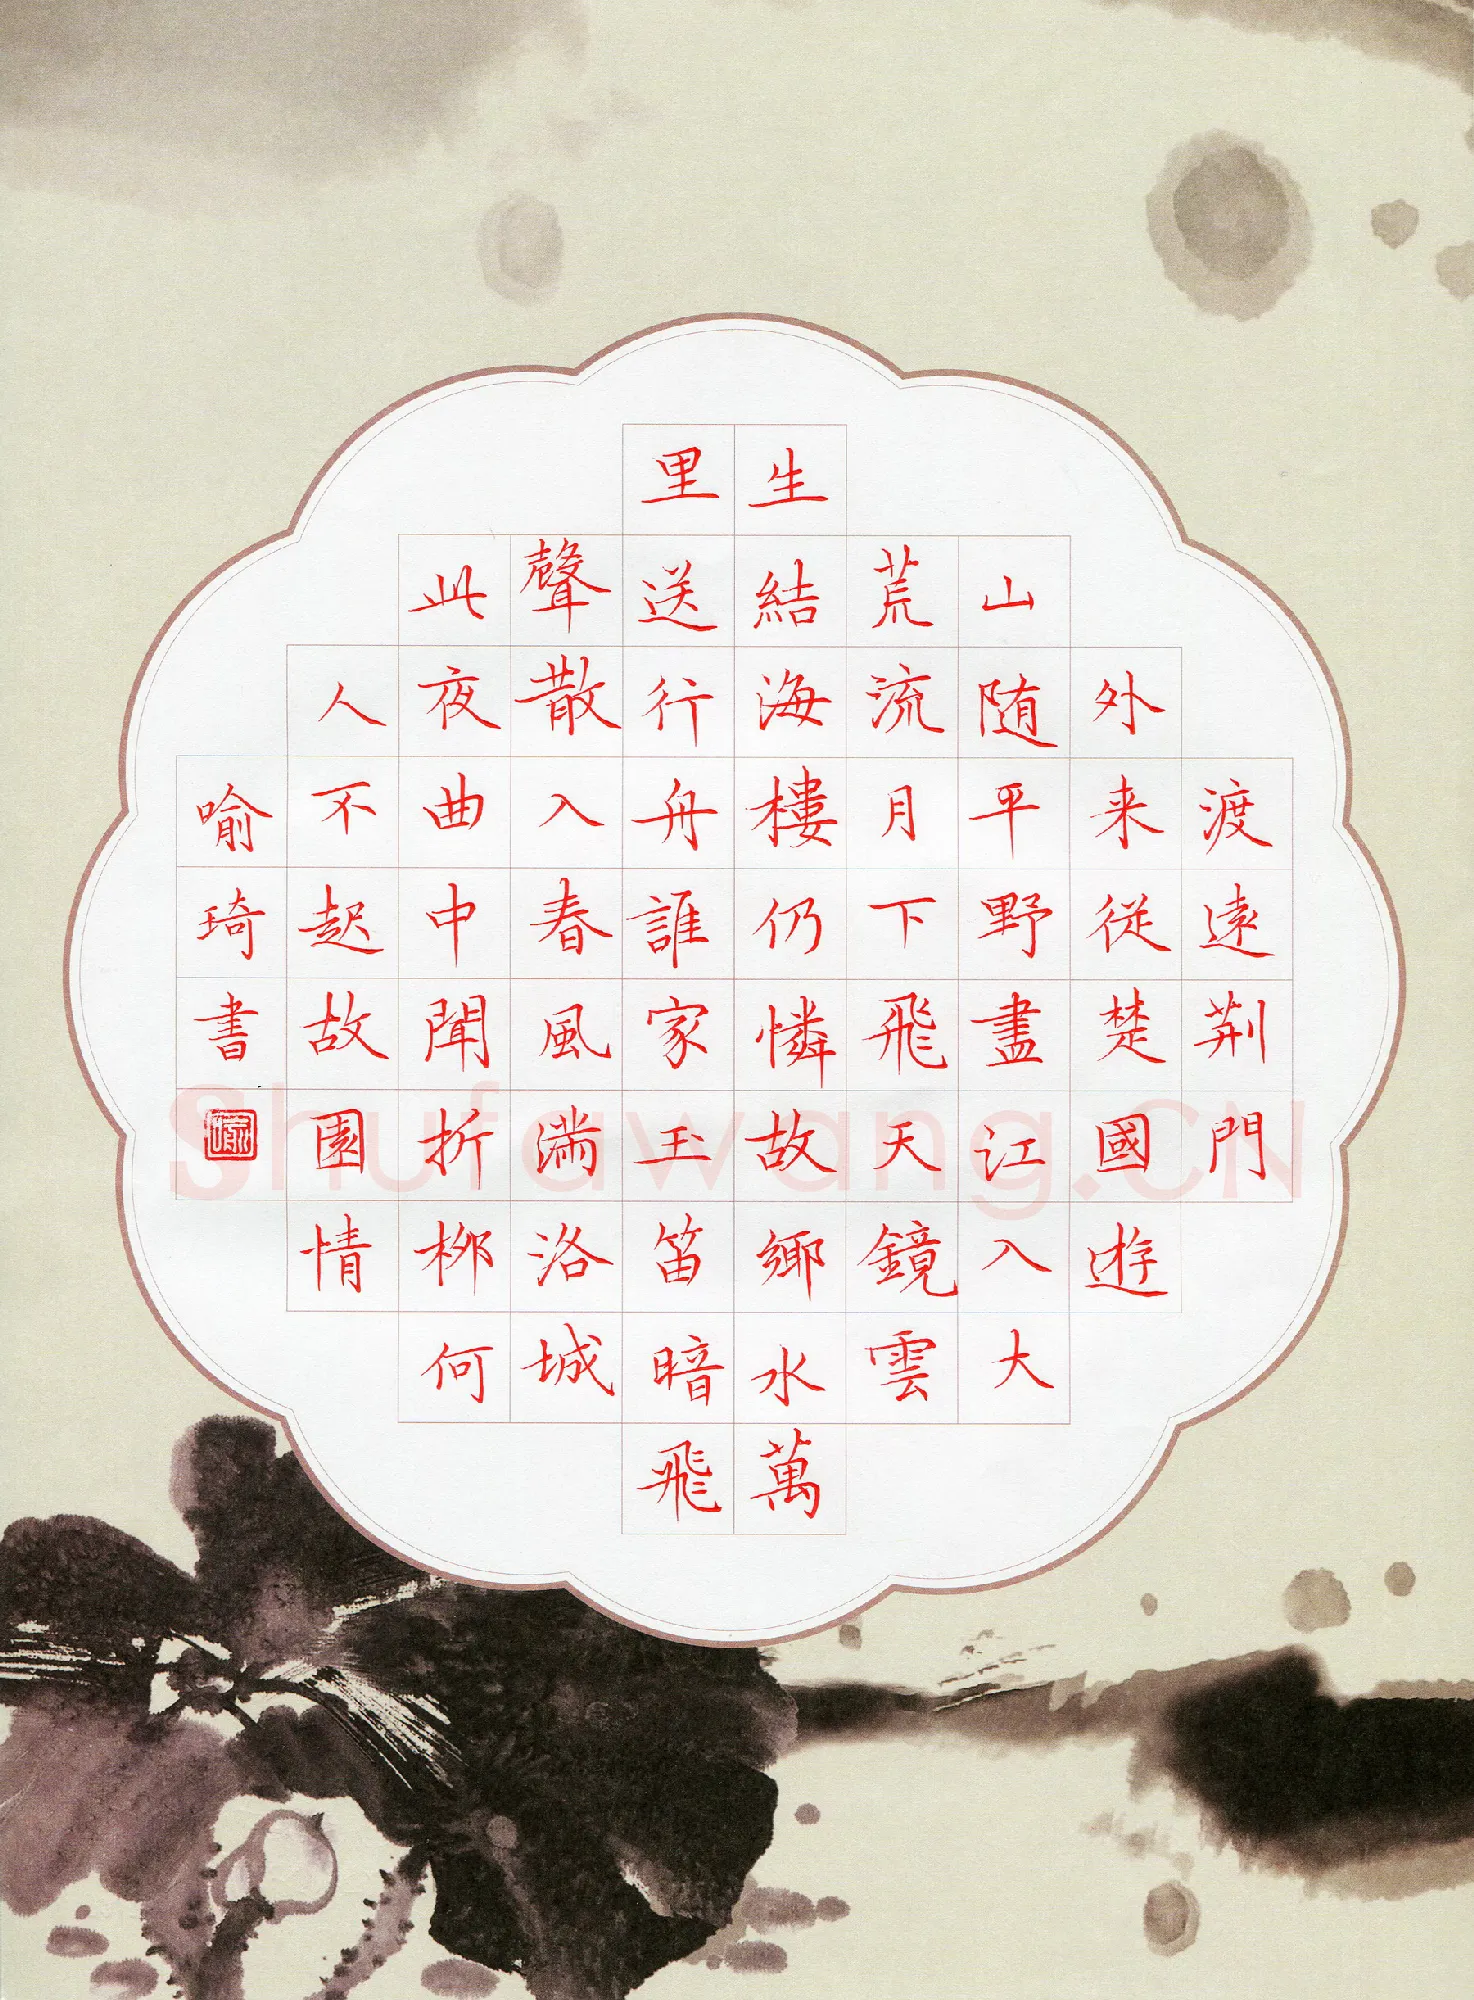 渡遠荆門
外来從楚國遊
山随平野盡江入大
荒流月下飛天鏡雲
生結海樓仍憐故鄉水萬
里送行舟誰家玉笛暗飛
聲散入春風滿洛城
此夜曲中聞折柳何
人不起故園情
喻琦書
Shufawang.CN